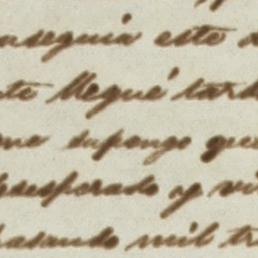 nseguia este
te Megué tard
me supongo que
desesperado y vi
pasando mil tr